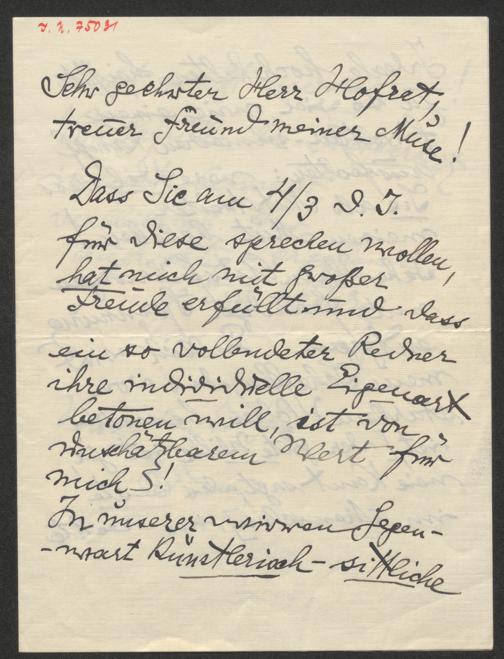 J. N. 75031
Sehr geehrter Herr Hofrat,
treuer Freund meiner Muse!
Dass Sie am 4/3 d. J.
für diese sprechen wollen,
hat mich mit großer
Freude erfüllt und dass
ein so vollendeter Redner
ihre individuelle Eigenart
betonen will, ist von
unschätzbarem Wert für
mich!
In unserer wirren Gegen-
-wart künstlerisch- sittliche